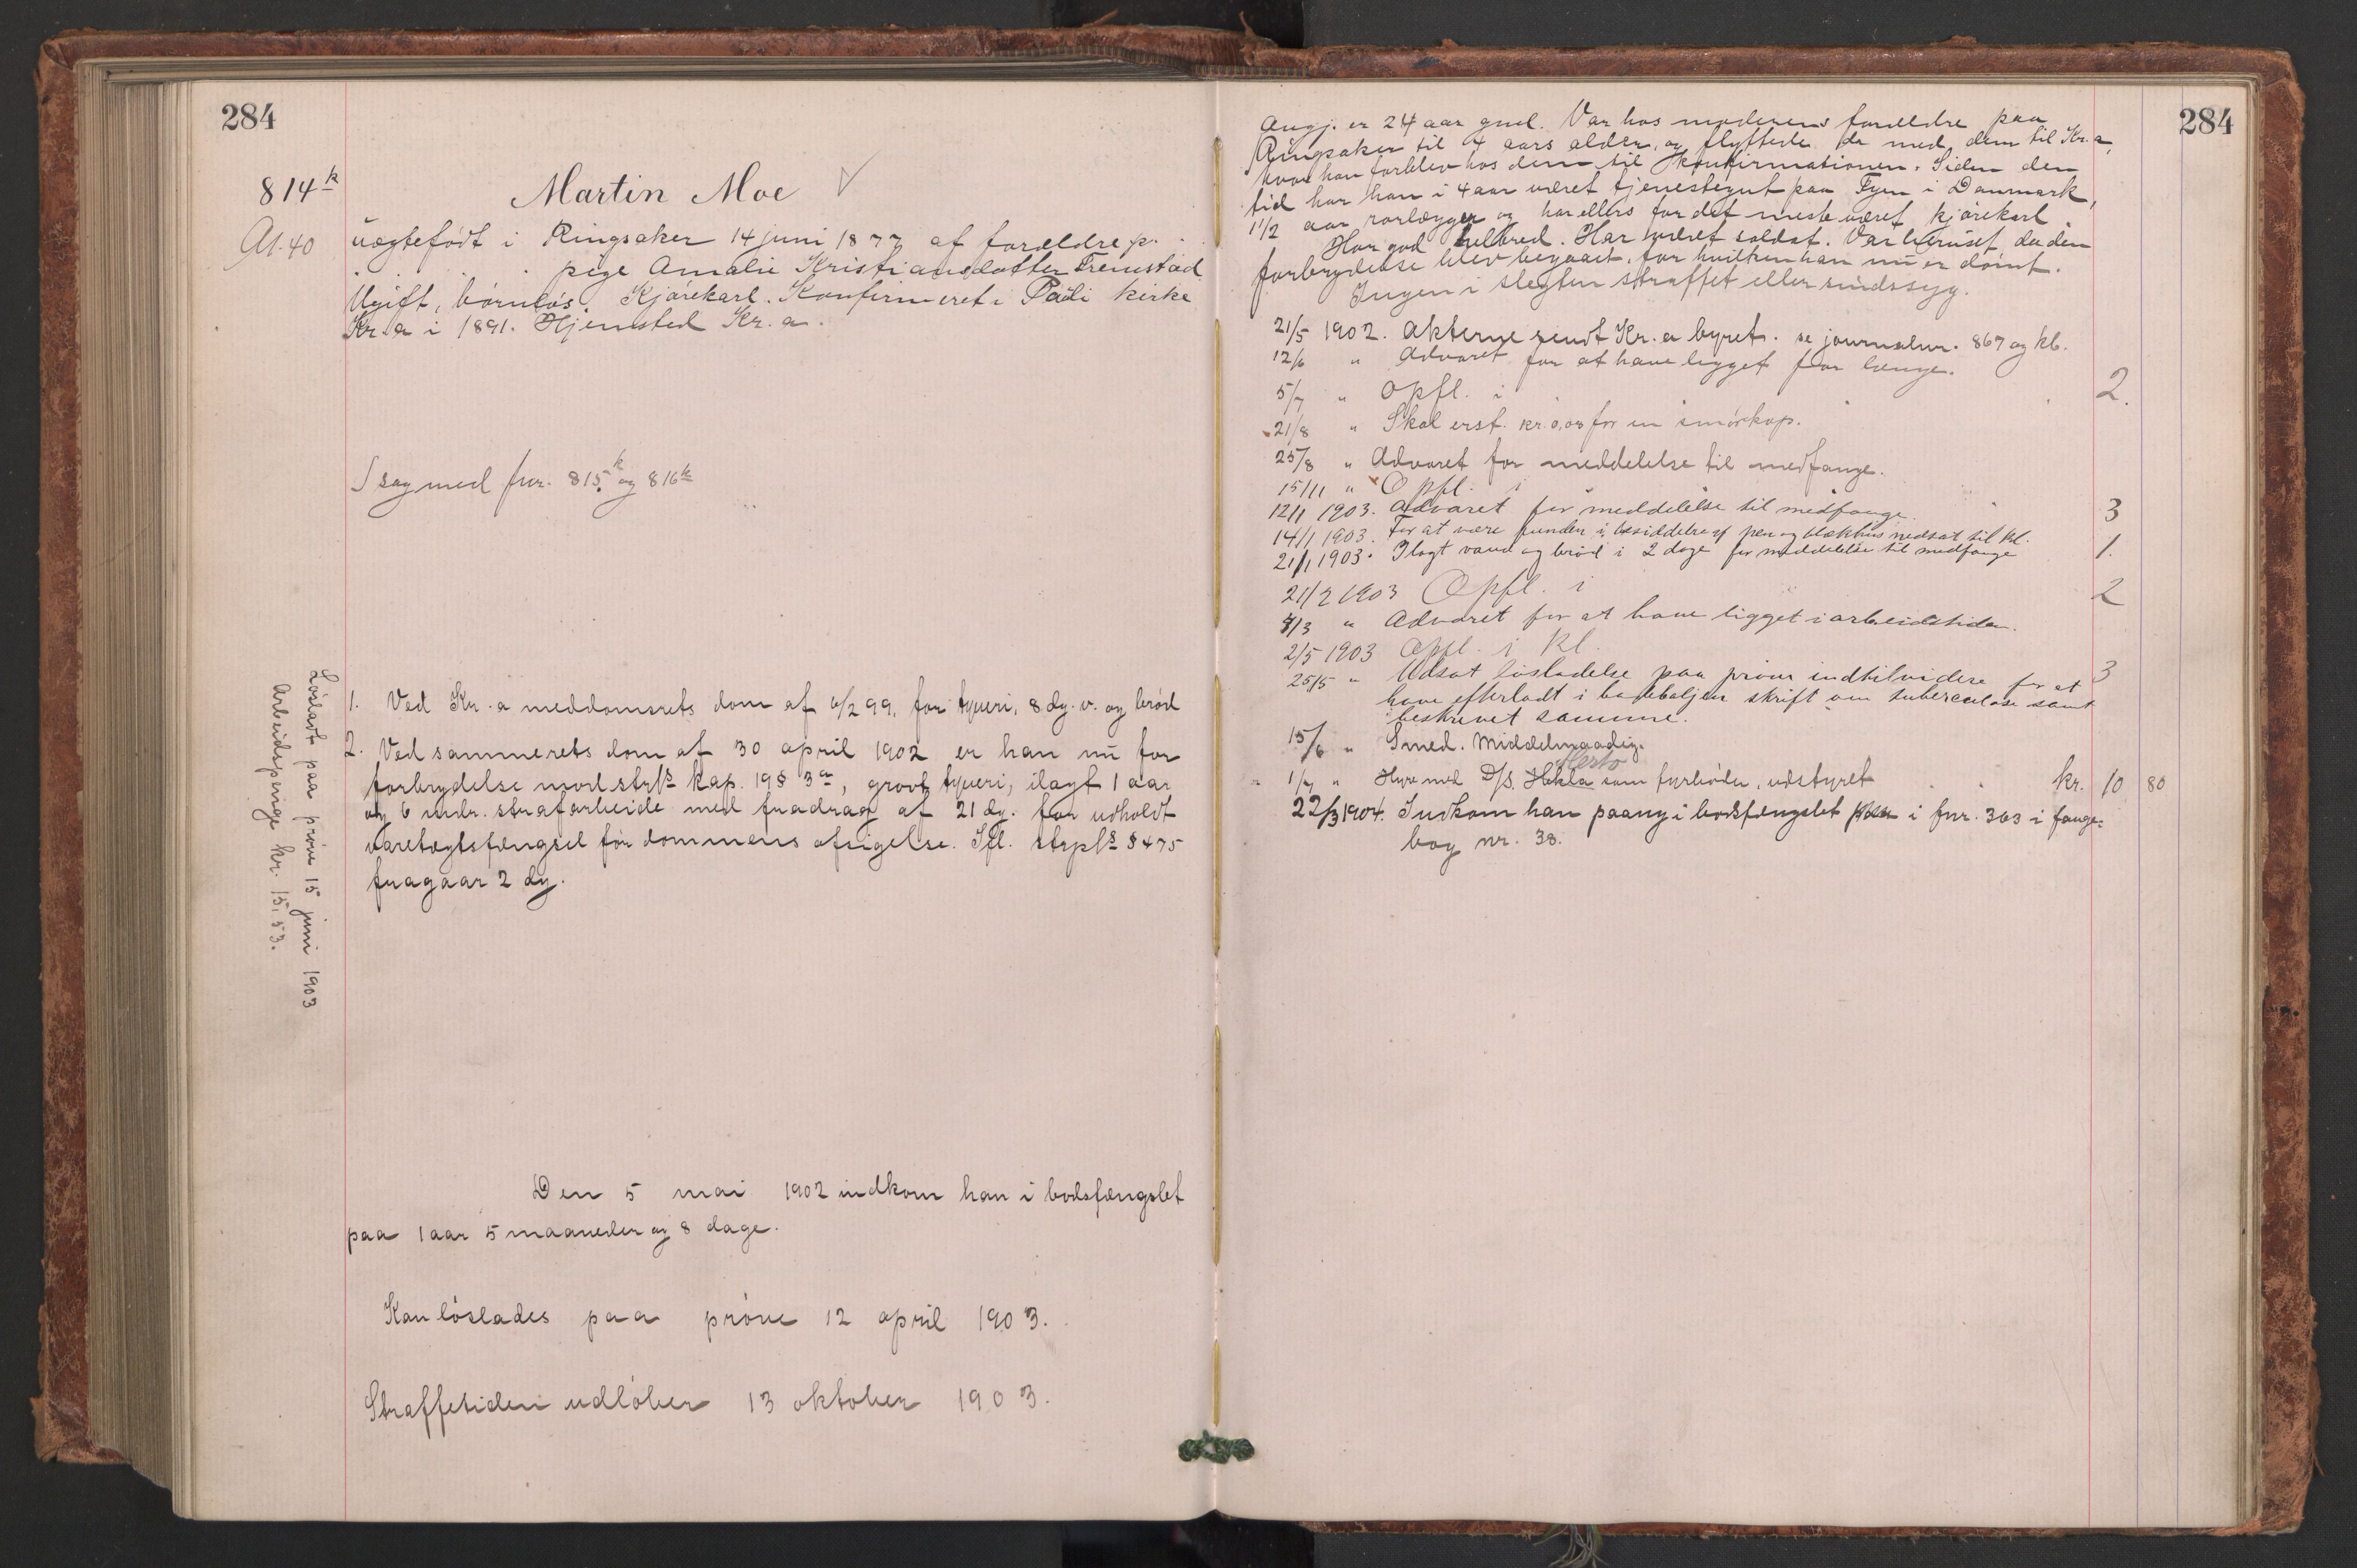 284
814k
At. 40
Martin Moe
uægtefødt i Ringsaker 14 juni 1877 af forældre p.
pige Amalie Kristiansdatter Fremstad
Ugift, børnløs. Kjørekarl. Konfirmeret i Pauli kirke
Kr.a i 1891. Hjemsted Kr.a.
I sag med fnr. 815k og 816k
1. Ved Kr.a meddomsrets dom af 6/2 99, for tyveri, 8 dg. v. og brød
2. Ved sammerets dom af 30 april 1902 er han nu for
forbrydelse mod strfls kap. 19 § 3a, grovt tyveri, ilagt 1 aar
og 6 mdr. strafarbeide med fradrag af 21 dg. for udholdt
varetægtsfængsel før dommens afsigelse. Ifl. strpls § 475
fragaar 2 dg.
Løsladt paa prøve 15 juni 1903
Arbeidspenge kr. 15,53.
Den 5 mai 1902 indkom han i bodsfængslet
paa 1 aar 5 maaneder og 8 dage.
Kan løslades paa prøve 12 april 1903.
Straffetiden udløber 13 oktober 1903.
284
Angj. er 24 aar gml. Var hos moderens forældre paa
Ringsaker til 4 aars alder, og flyttede da med dem til Kr.a,
hvor han forblev hos dem til konfirmationen. Siden den
tid har han i 4 aar været tjenestegut paa Fyen i Danmark,
1 1/2 aar rørlægger og har ellers for det meste været kjørekarl.
Har god helbred. Har været soldat. Var beruset da den
forbrydelse blev begaaet, for hvilken han nu er dømt.
Ingen i slegten straffet eller sindssyg.
21/5 1902. Akterne sendt Kr.a byret. se journalnr. 867 og kb.
12/6 " Advaret for at have ligget for længe.
5/7 " Opfl. i 2.
21/8 " Skal erst. kr. 0,08 for en smørkop.
25/8 " Advaret for meddelelse til medfange.
15/11 " Opfl. i 3
12/1 1903. Advaret for meddelelse til medfange.
14/1 1903. For at være funden i besiddelse af pen og blækhus nedsat til kl. 1.
21/1 1903. Ilagt vand og brød i 2 dage for meddelelse til medfange
21/2 1903 Opfl. i 2
4/3 " Advaret for at have ligget i arbeidstiden.
2/5 1903 Opfl. i kl. 3
25/5 " Udsat løsladelse paa prøve indtilvidere for at
have efterladt i badebaljen skrift om tuberculose samt
beskrevet samme.
15/6 " Smed. Middelmaadig.
Hesto
1/7 " Hyre med D/S. Hekla som fyrbøder, udstyret kr. 10 80
22/3 1904. Indkom han paany i bodsfængslet i fnr. 363 i fange-
bog nr. 38.